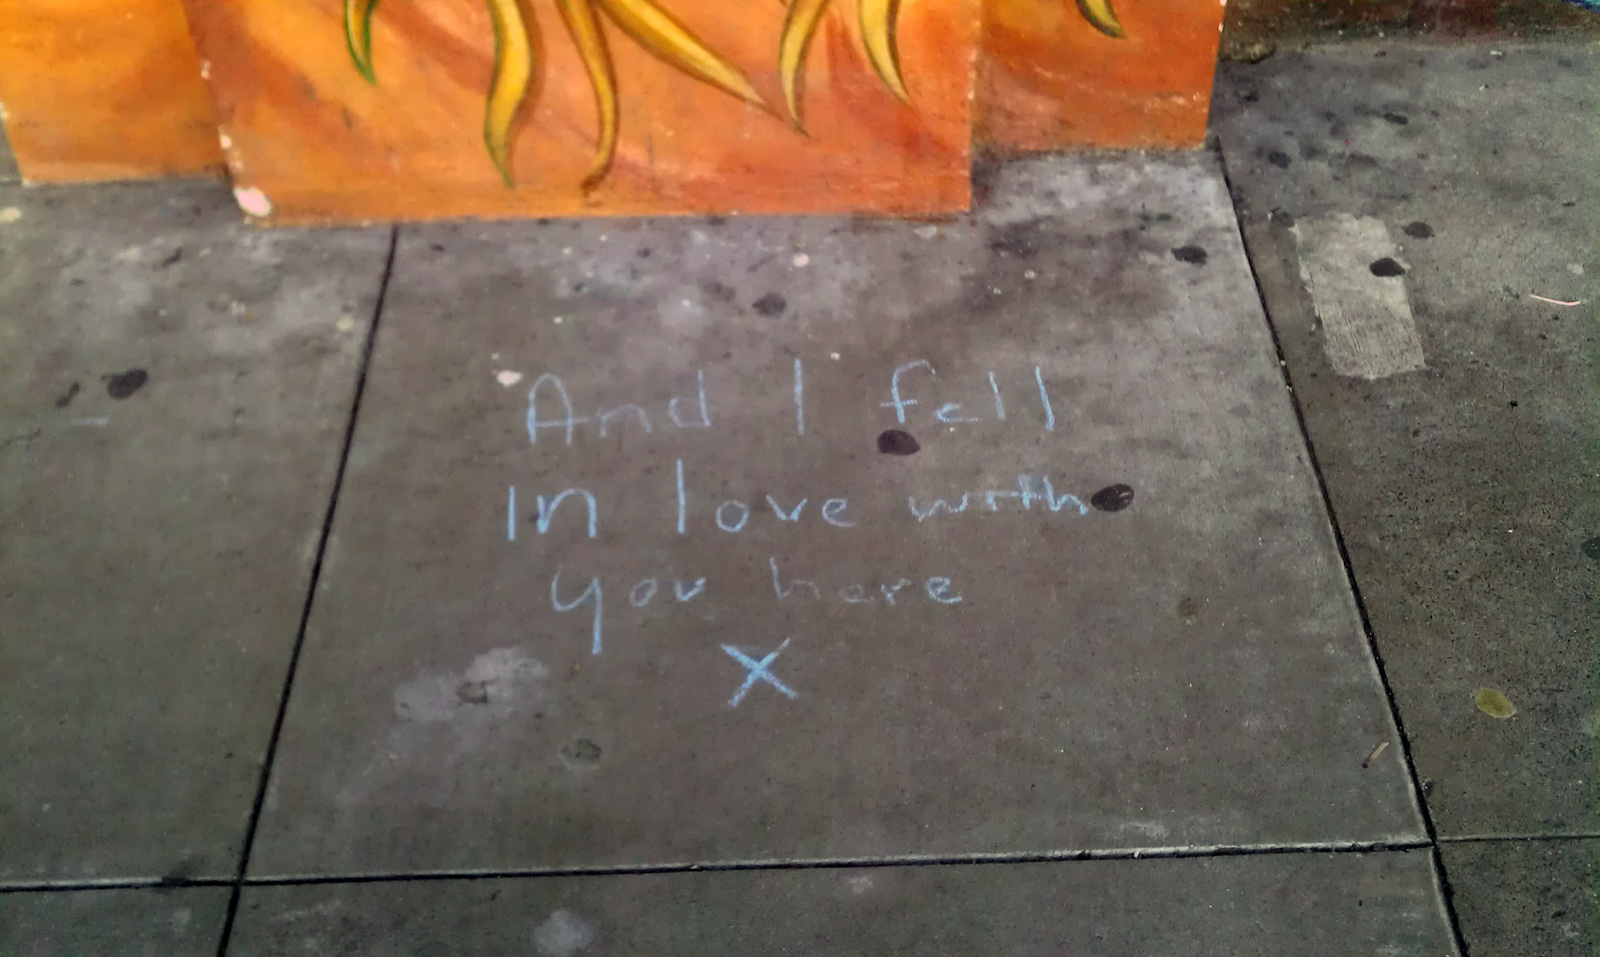 And I fell
in love with
you here
X